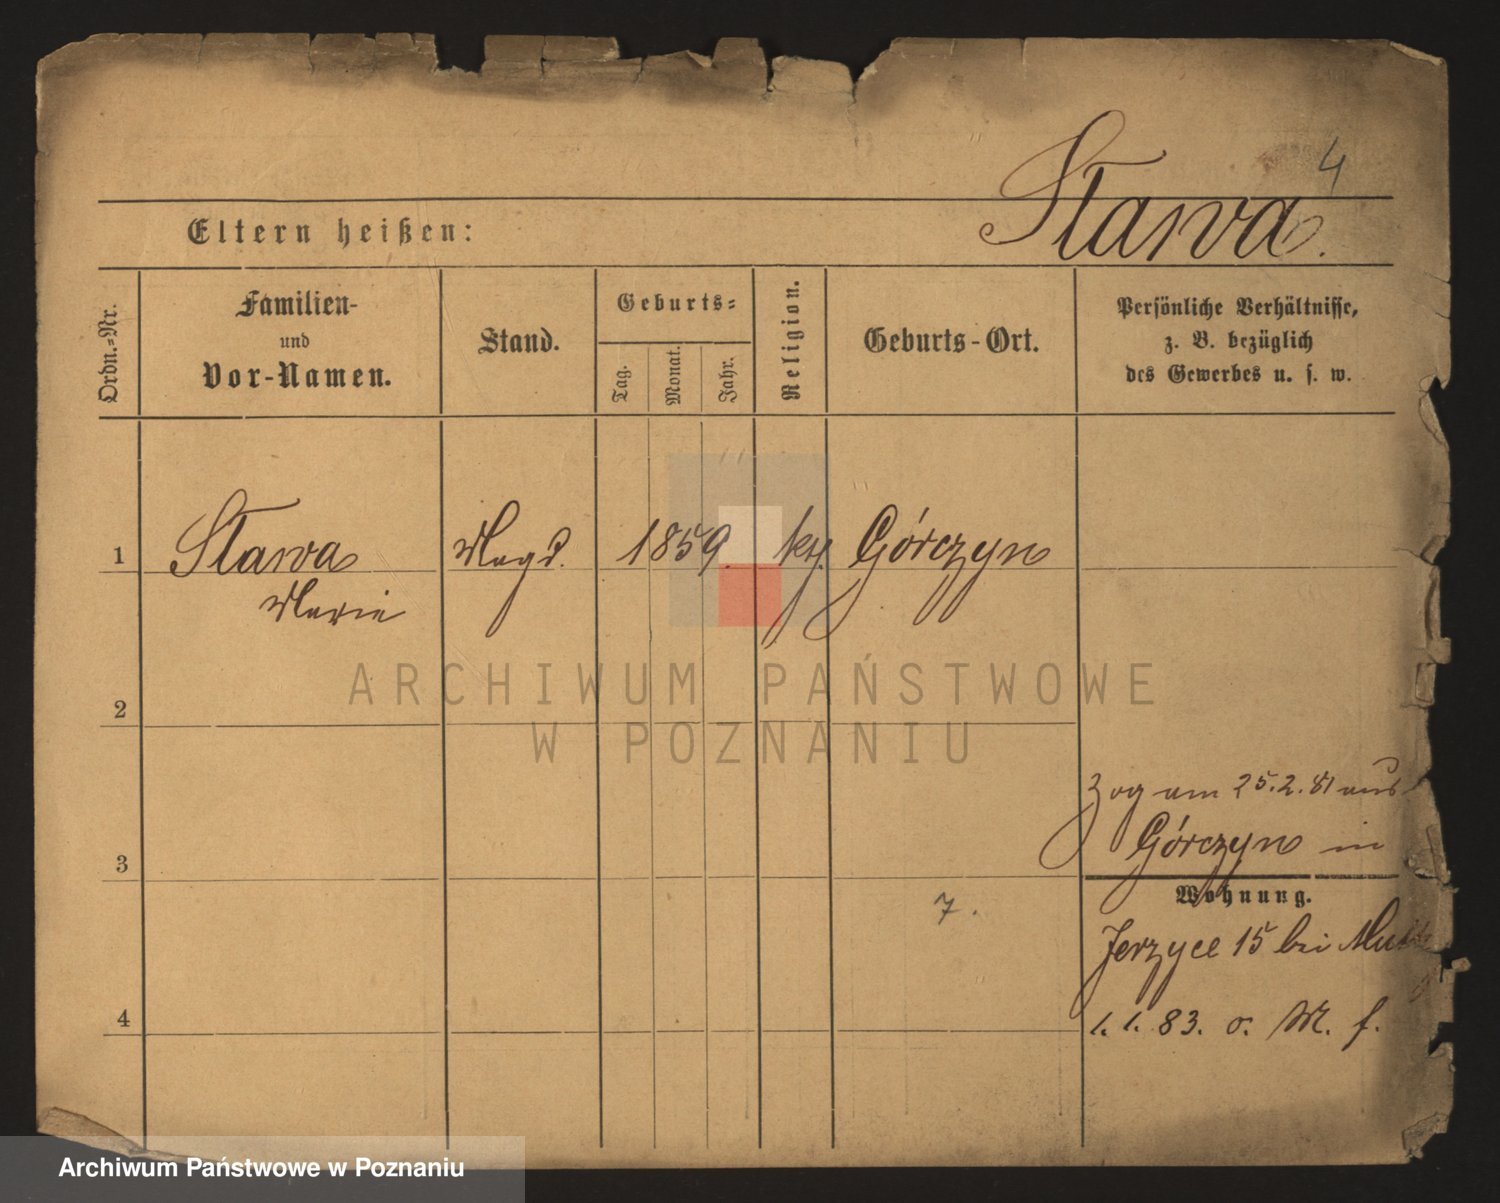 4
Stawa.
Eltern heißen:
Ordn.-Nr.
Familien-
und
Vor-Namen.
Stand.
Geburts-
Tag.
Monat.
Jahr.
Religion.
Geburts-Ort.
Persönliche Verhältnisse,
z. B. bezüglich
des Gewerbes u. s. w.
1 Stawa Magd. 1859. kth. Górczyn
Marie
ARCHIWUM PAŃSTWOWE
W POZNANIU
2
zog am 25.2.81 aus
Górczyn in
3
Wohnung.
7.
Jerzyce 15 bei
4
1.1.83. o. M. f.
Archiwum Państwowe w Poznaniu